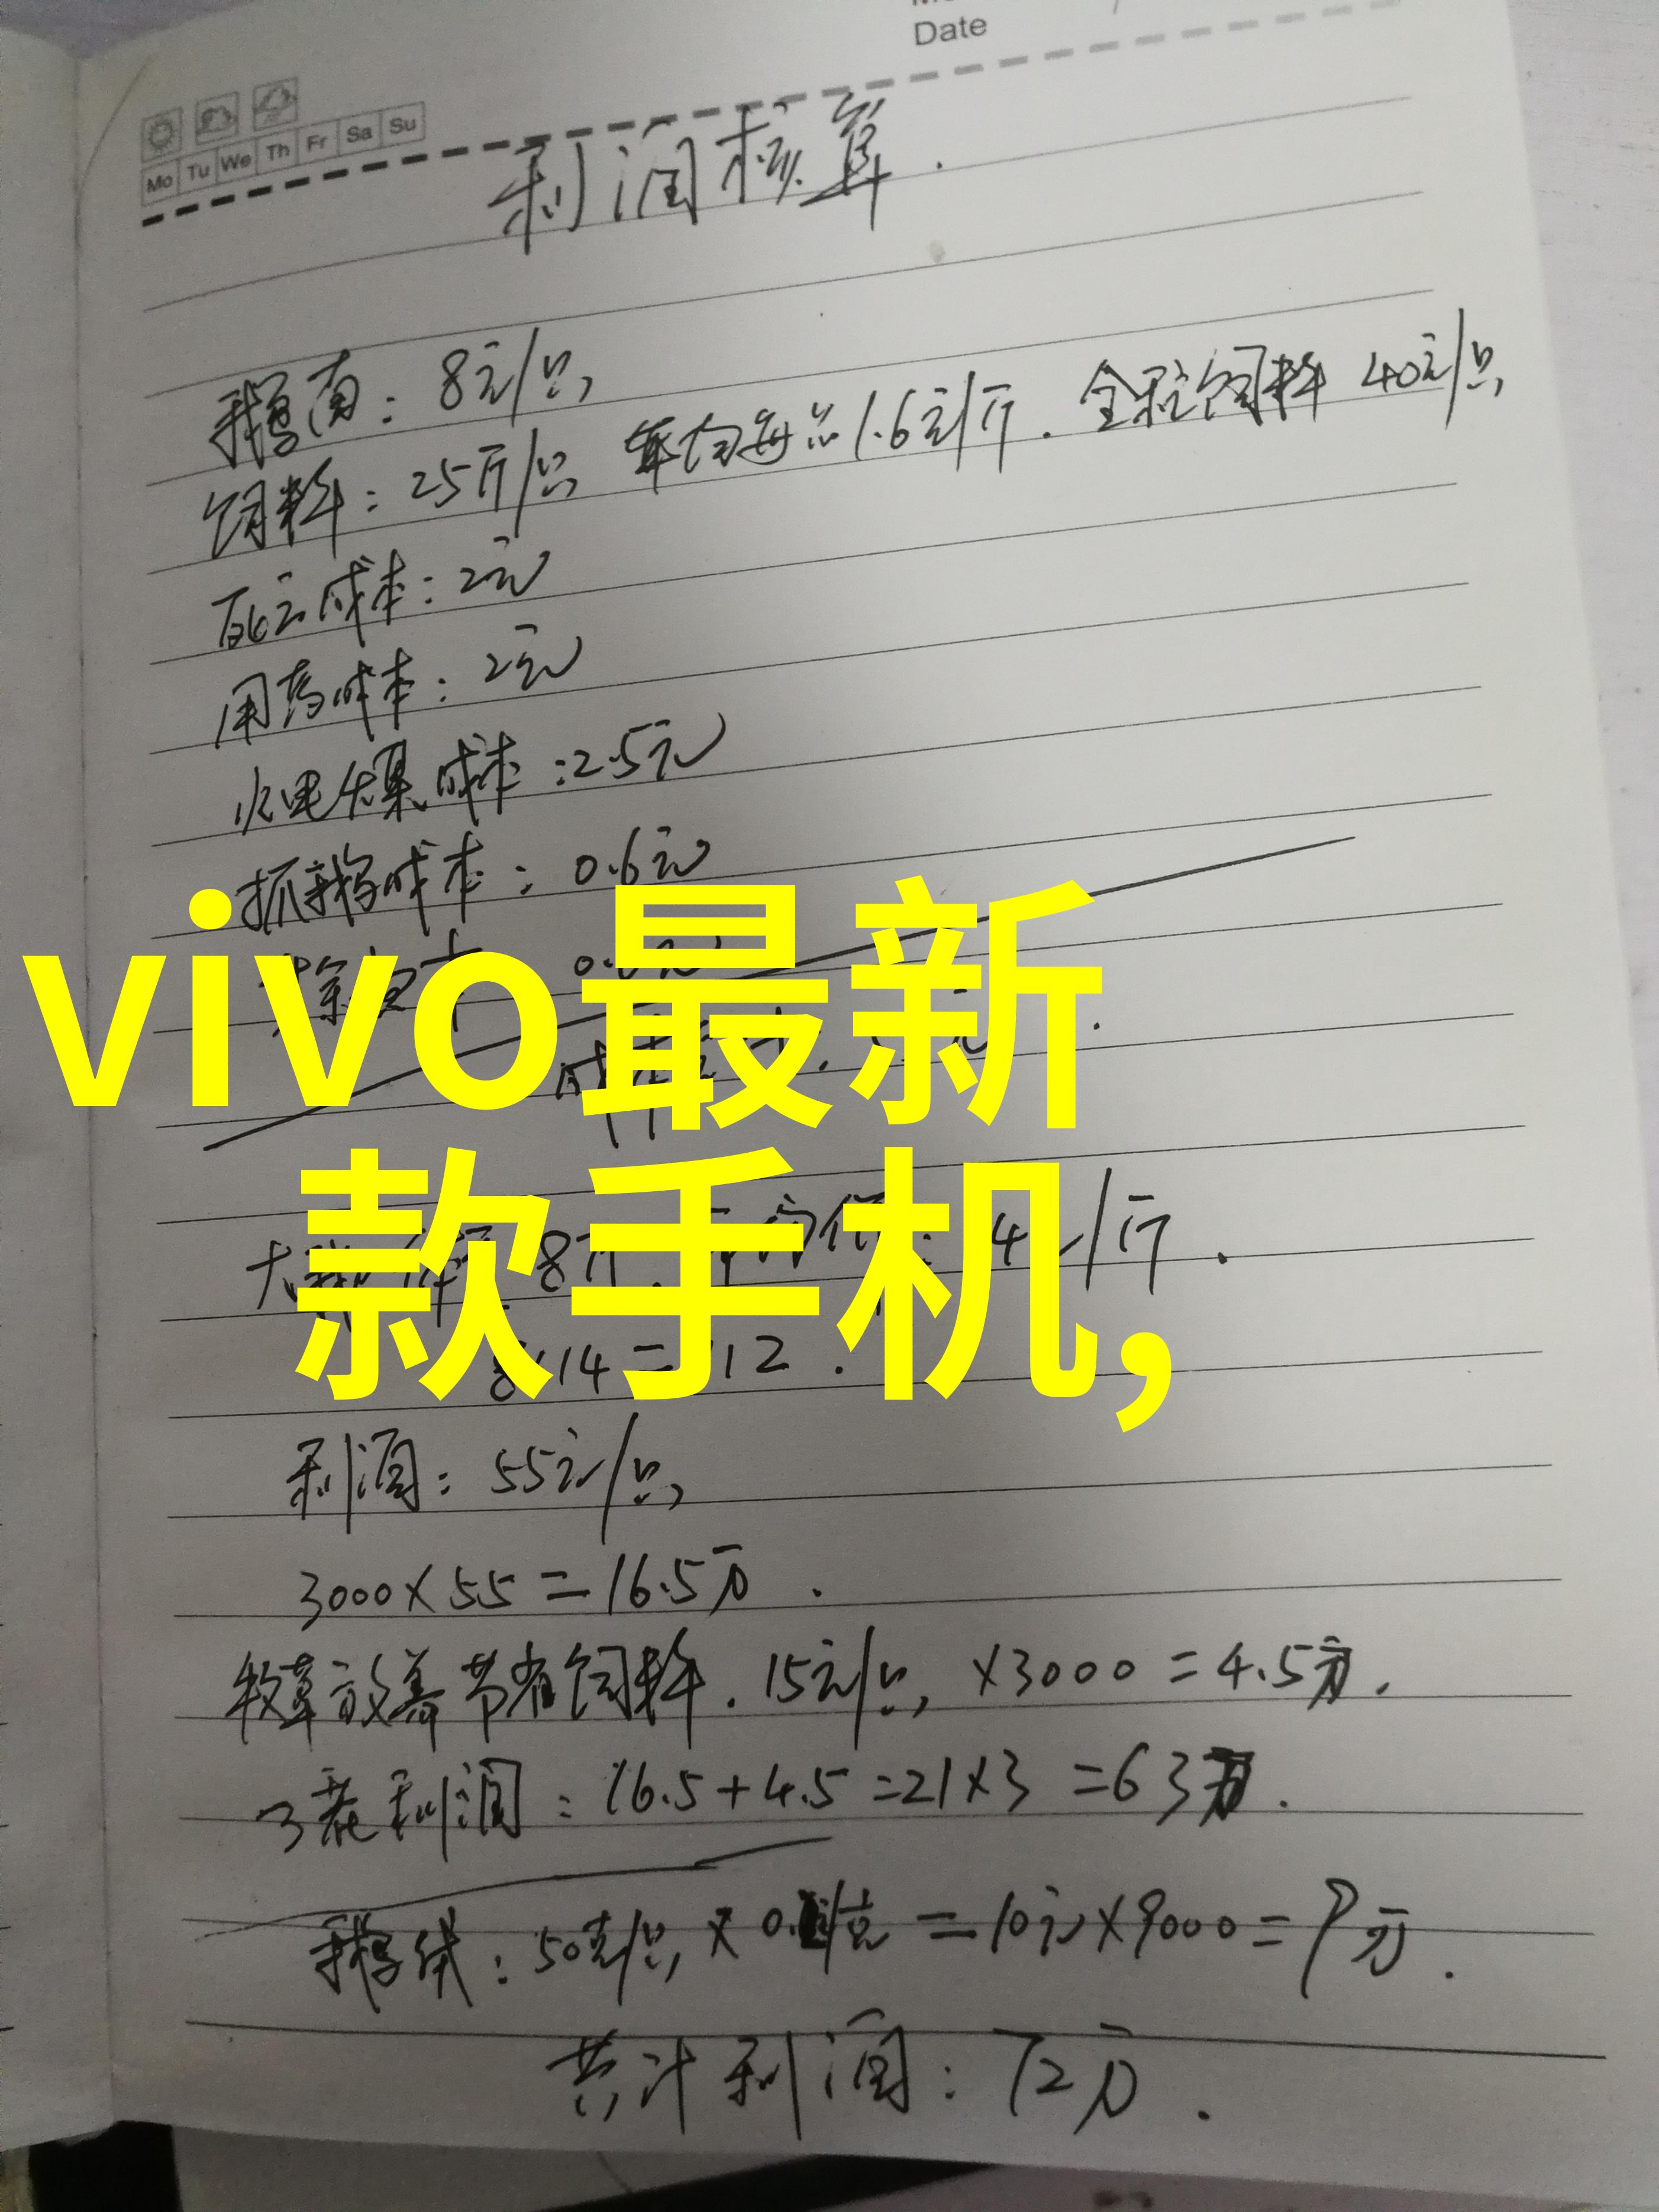 Date
Mo Tu We Th Fr Sa Su
利润核算.
鹅苗: 8元/只
饲料: 25斤/只 平均每斤1.6元/斤. 全程饲料 40元/只
死亡成本: 2元
用药成本: 2元
水电煤成本: 2.5元
抓鹅成本: 0.6元
vivo最新
款手机,
8斤
/斤.
14=112.
利润: 55元/只
3000×55=16.5万.
牧草放养节省饲料. 15元/只, ×3000=4.5万.
3批利润: 16.5+4.5=21×3=63万.
鹅绒: 50克/只 × /克=10元×9000=9万.
共计利润: 72万.